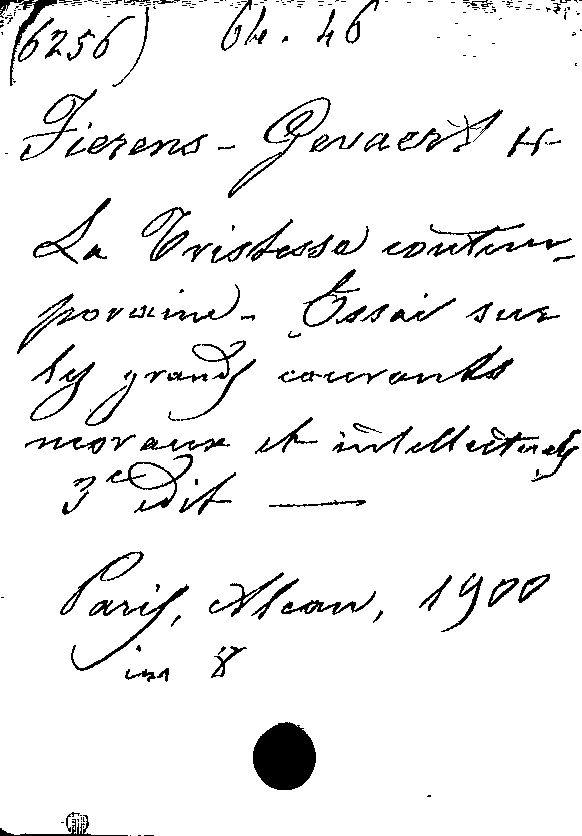 (6256) 64. 46
Fierens-Gevaert H.
La Tristesse contem-
poraine. Essai sur
les grands courants
moraux et intellectuels
3e édit —
Paris, Alcan, 1900
in 8